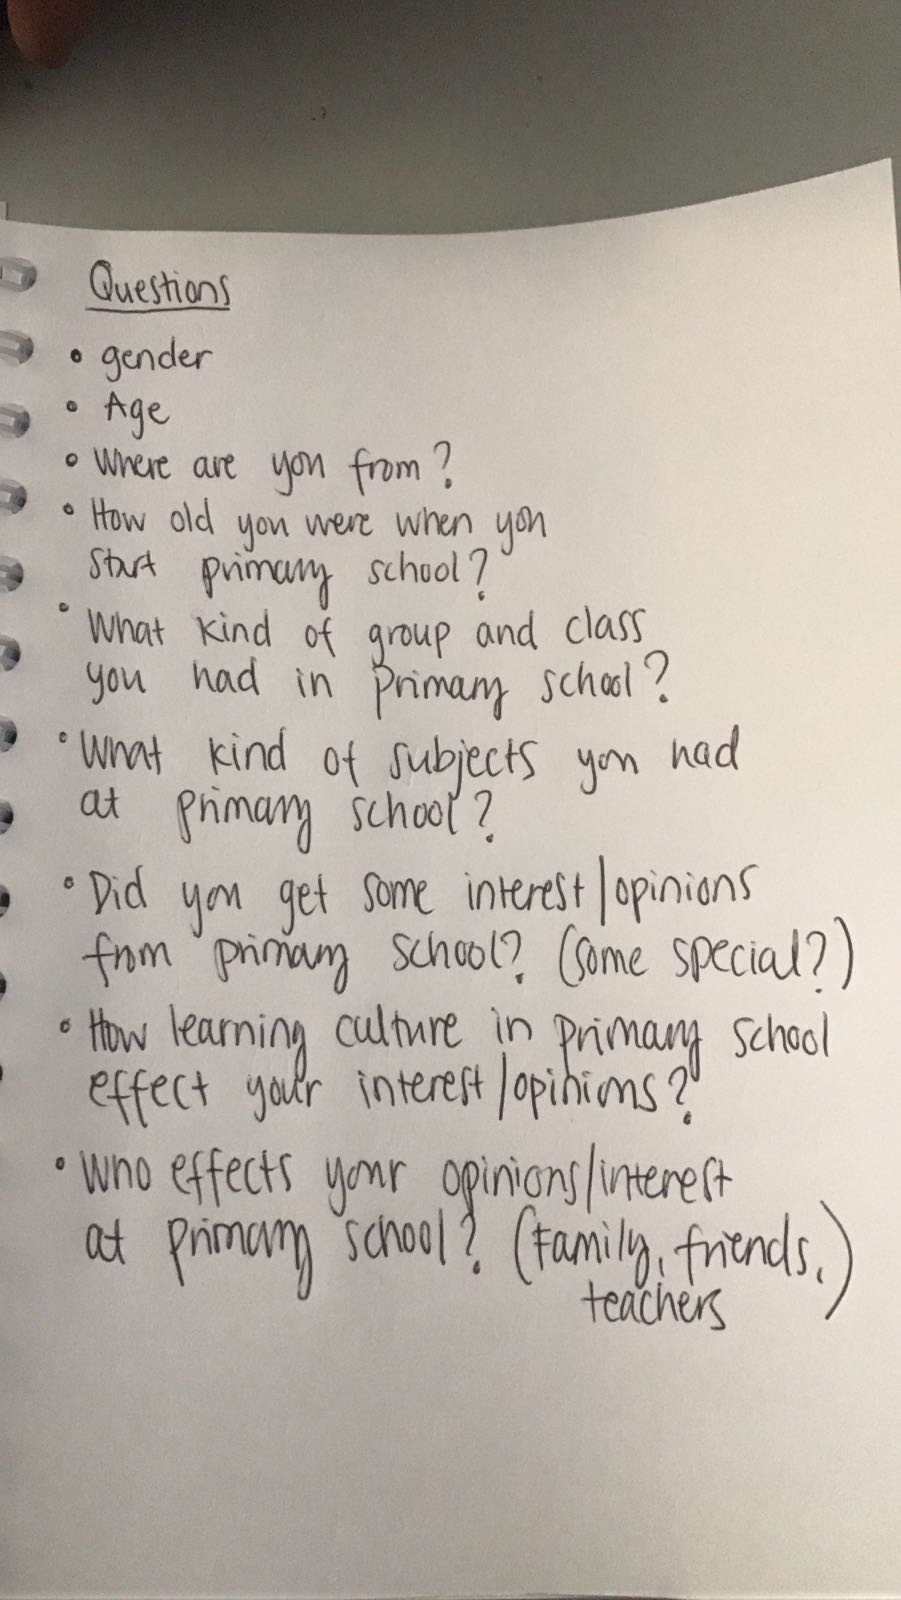 Questions
• gender
• Age
• Where are you from?
• How old you were when you
start primary school?
• What kind of group and class
you had in primary school?
• What kind of subjects you had
at primary school?
• Did you get some interest/opinions
from primary school? (some special?)
• How learning culture in primary school
effect your interest/opinions?
• Who effects your opinions/interest
at primary school? (Family, friends,
teachers)